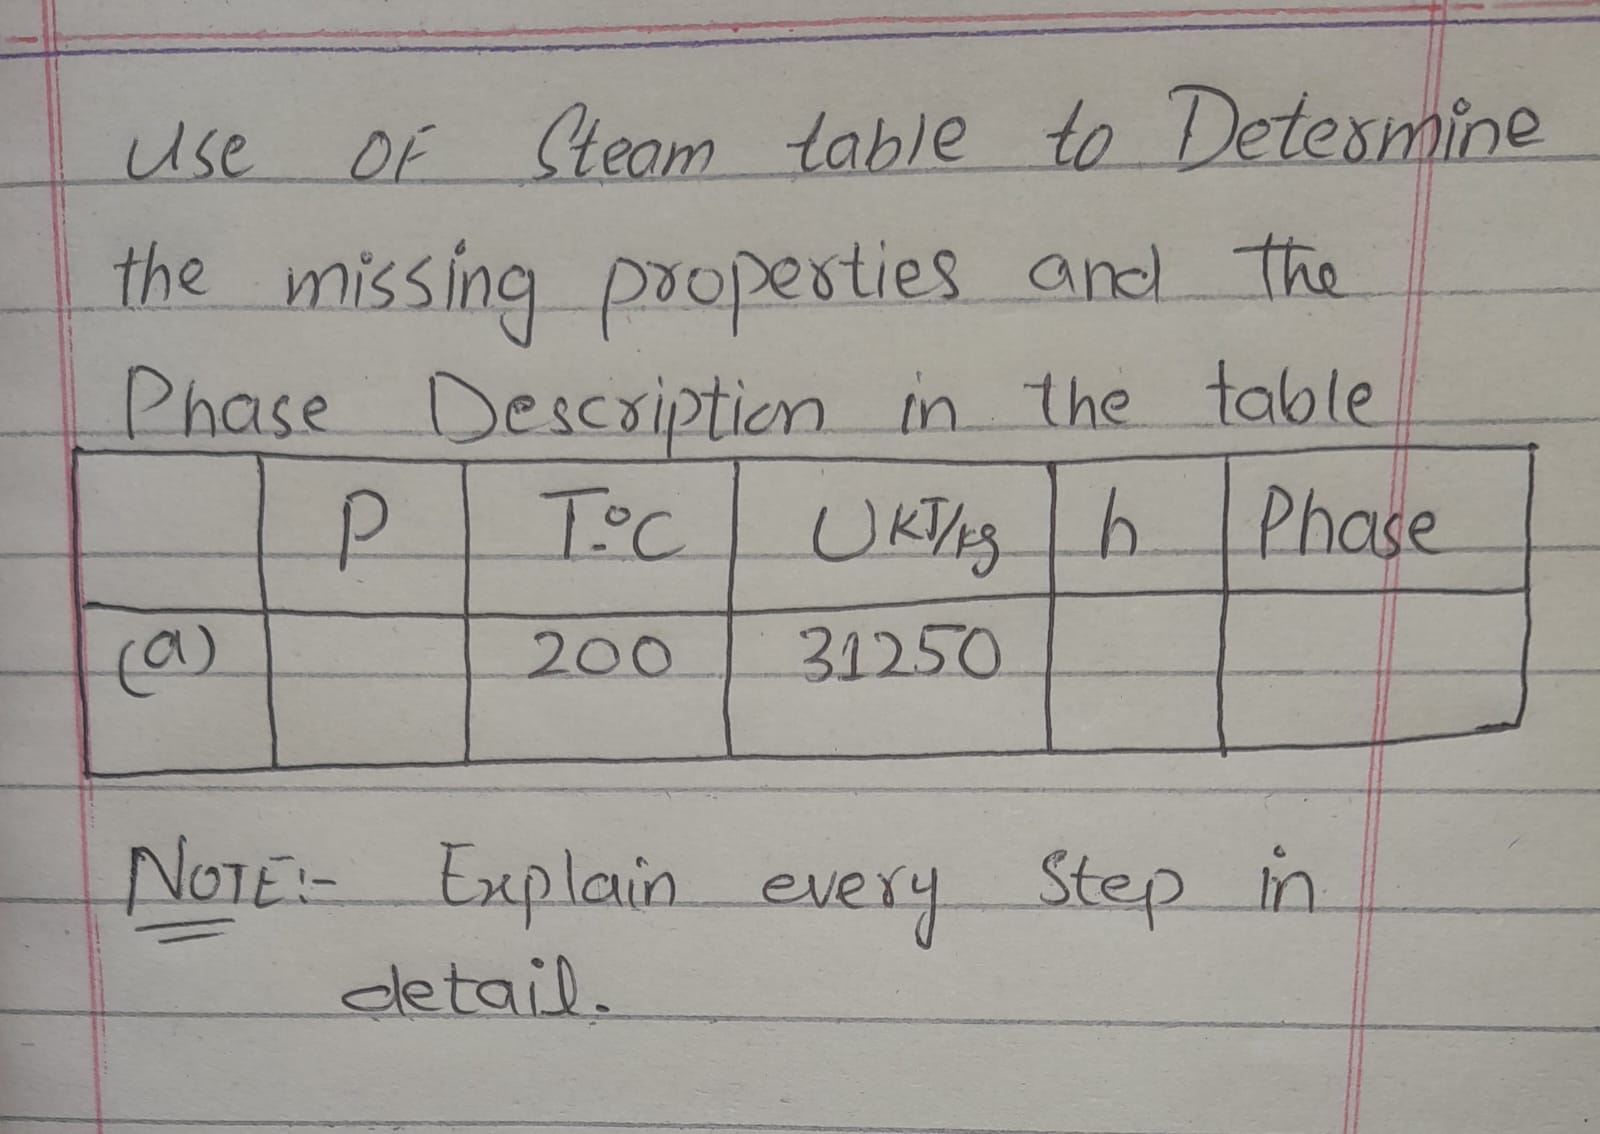 Use OF Steam table to Determine
the missing properties and the
Phase Description in the table
P T.°C U KJ/kg h Phase
(a) 200 31250
NOTE:- Explain every step in
detail.